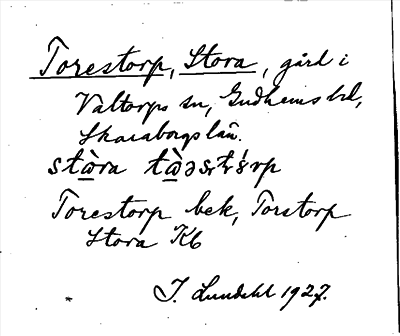 Torestorp, Stora, gård i
Valtorps sn, Gudhems hd,
Skaraborgs län.
stɑ̀ra
Torestorp bek, Torstorp
Stora Kb
J. Lundahl 1927.